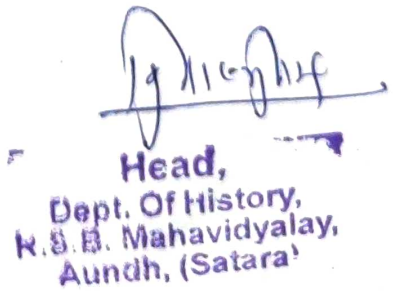 Head,
Dept. Of History,
R.S.B. Mahavidyalay,
Aundh, (Satara)